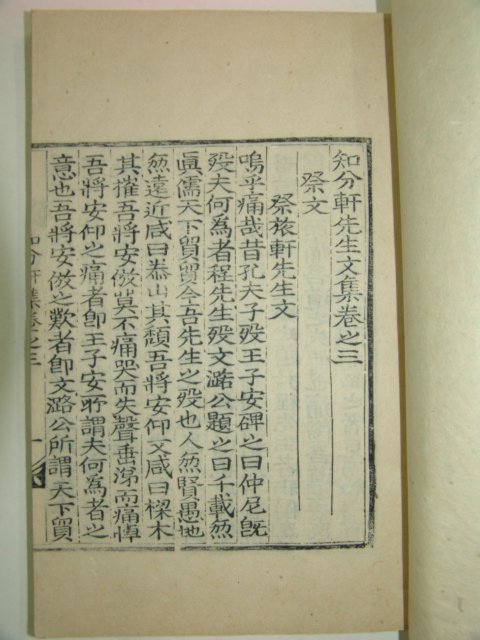 知分軒先生文集卷之三
祭文
祭旅軒先生文
嗚乎痛哉昔孔夫子歿王子安碑之曰仲尼旣
歿夫何為者程先生歿文潞公題之曰千載無
眞儒天下貿貿今吾先生之歿也人無賢愚地
無遠近咸曰泰山其頹吾將安仰又咸曰樑木
其摧吾將安倣莫不痛哭而失聲垂涕而痛悼
吾將安仰之痛者卽王子安所謂夫何為者之
意也吾將安倣之歎者卽文潞公所謂天下貿
知分軒集卷之三 一